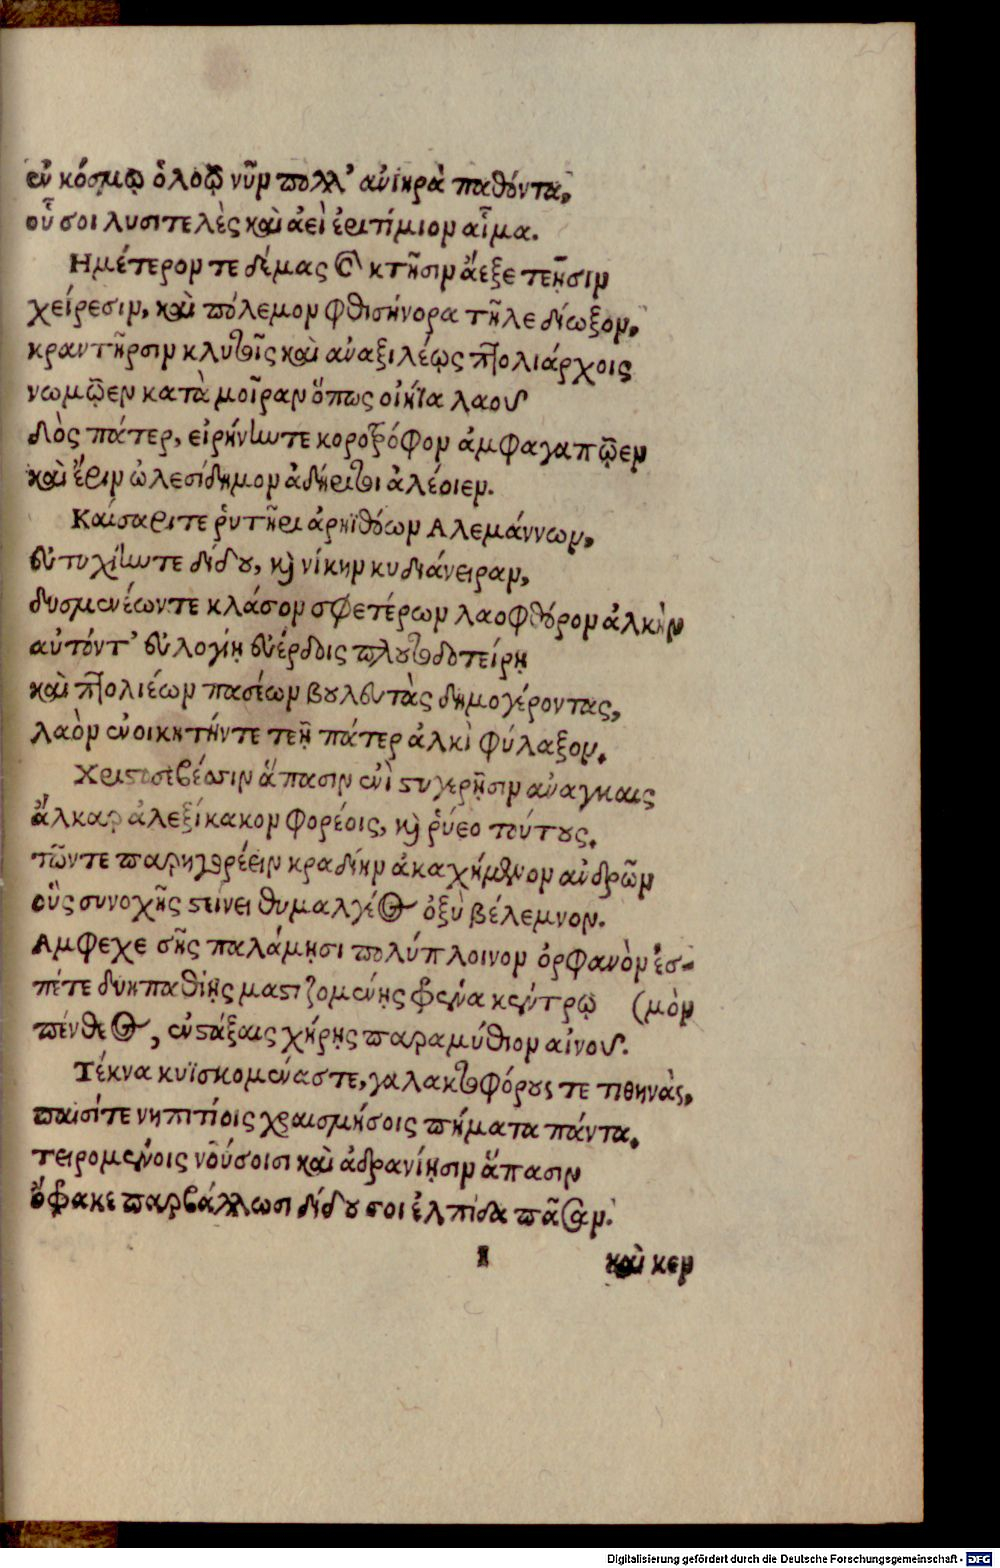 ἐν κόσμῳ ὀλοῷ νῦν πολλ' ἀνιηρὰ παθόντα,
οὗ σοι λυσιτελὲς καὶ ἀεὶ ἐριτίμιον αἷμα.
Ημέτερον τε δέμας καὶ κτῆσιν ἄεξε τεῇσιν
χείρεσιν, καὶ πόλεμον φθισήνορα τῆλε δίωξον,
κραντῆρσιν κλυτοῖς καὶ ἀναξιλέως πτολιάρχοις
νωμῷεν κατὰ μοῖραν ὅπως οἰήϊα λαοῦ
δὸς πάτερ, εἰρήνην τε κοροτρόφον ἀμφαγαπῷεν
καὶ ἔριν ὠλεσίδημον ἀδήριτοι ἀλέοιεν.
Καίσαρι τε ῥυτῆρι ἀρηϊθόων Αλεμάννων,
εὐτυχίην τε δίδου, καὶ νίκην κυδιάνειραν,
δυσμενέων τε κλάσον σφετέρων λαοφθόρον ἀλκὴν
αὐτόν τ' εὐλογίῃ εὐέρδοις πλουτοδοτείρῃ
καὶ πτολιέων πασέων βουλευτὰς δημογέροντας,
λαὸν ἐνοικητήν τε τεῇ πάτερ ἀλκὶ φύλαξον.
Χριστοσεβέσιν ἅπασιν ἐνὶ στυγερῇσιν ἀναγκαις
ἄλκαρ ἀλεξίκακον φορέοις, καὶ ῥύεο τούτους.
τῶν τε παρηγορέειν κραδίην ἀκαχήμενον ἀνδρῶν
οὓς συνοχῆς στίνει θυμαλγέος ὀξὺ βέλεμνον.
Αμφεχε σῇς παλάμῃσι πολύπλοινον ὀρφανὸν ἑσ-
πέτε δυηπαθίης μαστιζομένης φρένα κέντρῳ (μὸν
πένθεος, ἐνστάξαις χήρης παραμύθιον αἰνοῦ.
Τέκνα κυϊσκομένας τε, γαλακτοφόρους τε τιθηνὰς,
παισίτε νηπιτίοις χραισμήσοις πήματα πάντα.
τειρομένοις νούσοισι καὶ ἀδρανίῃσιν ἅπασιν
ὄφρακε παρβάλλωσι δίδου σοι ἐλπίδα πᾶσαν.
I καὶ κεν
Digitalisierung gefördert durch die Deutsche Forschungsgemeinschaft - DFG